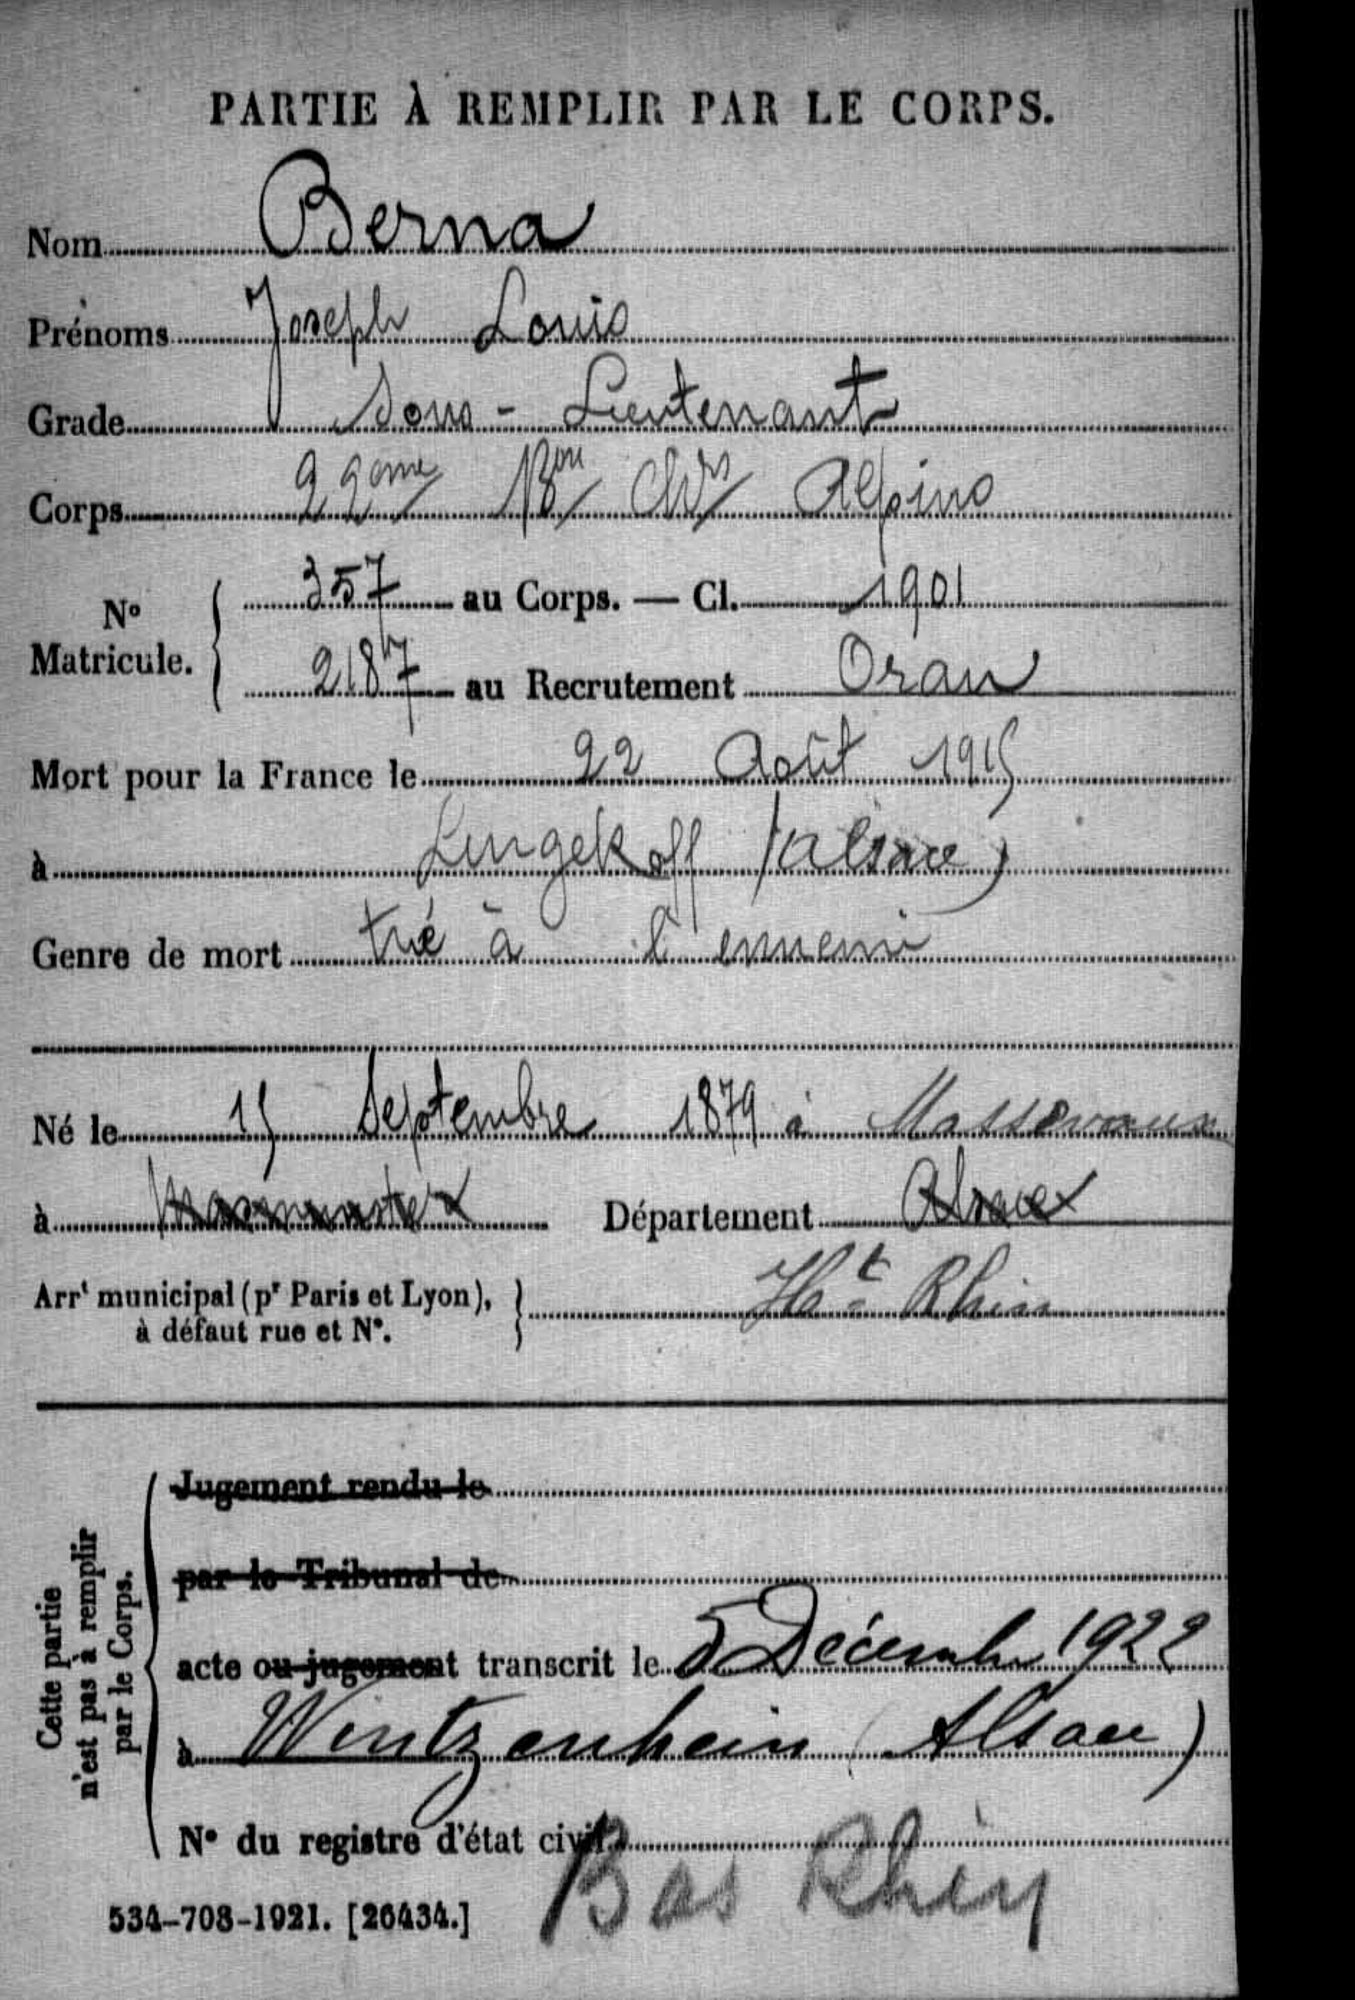 PARTIE À REMPLIR PAR LE CORPS.
Nom Berna
Prénoms Joseph Louis
Grade Sous-Lieutenant
Corps 22ème Bon Chrs Alpins
N° Matricule. 357 au Corps. — Cl. 1901
2187 au Recrutement Oran
Mort pour la France le 22 Août 1915
à Lingekoff (Alsace)
Genre de mort tué à l'ennemi
Né le 15 Septembre 1879 à Massevaux
à Masmunster Département Alsace
Arrt municipal (pr Paris et Lyon), à défaut rue et N°. Ht Rhin
Cette partie n'est pas à remplir par le Corps.
Jugement rendu le
par le Tribunal de
acte ou jugement transcrit le 5 Décembre 1922
à Wintzenheim (Alsace)
N° du registre d'état civil
Bas Rhin
534-708-1921. [26434.]